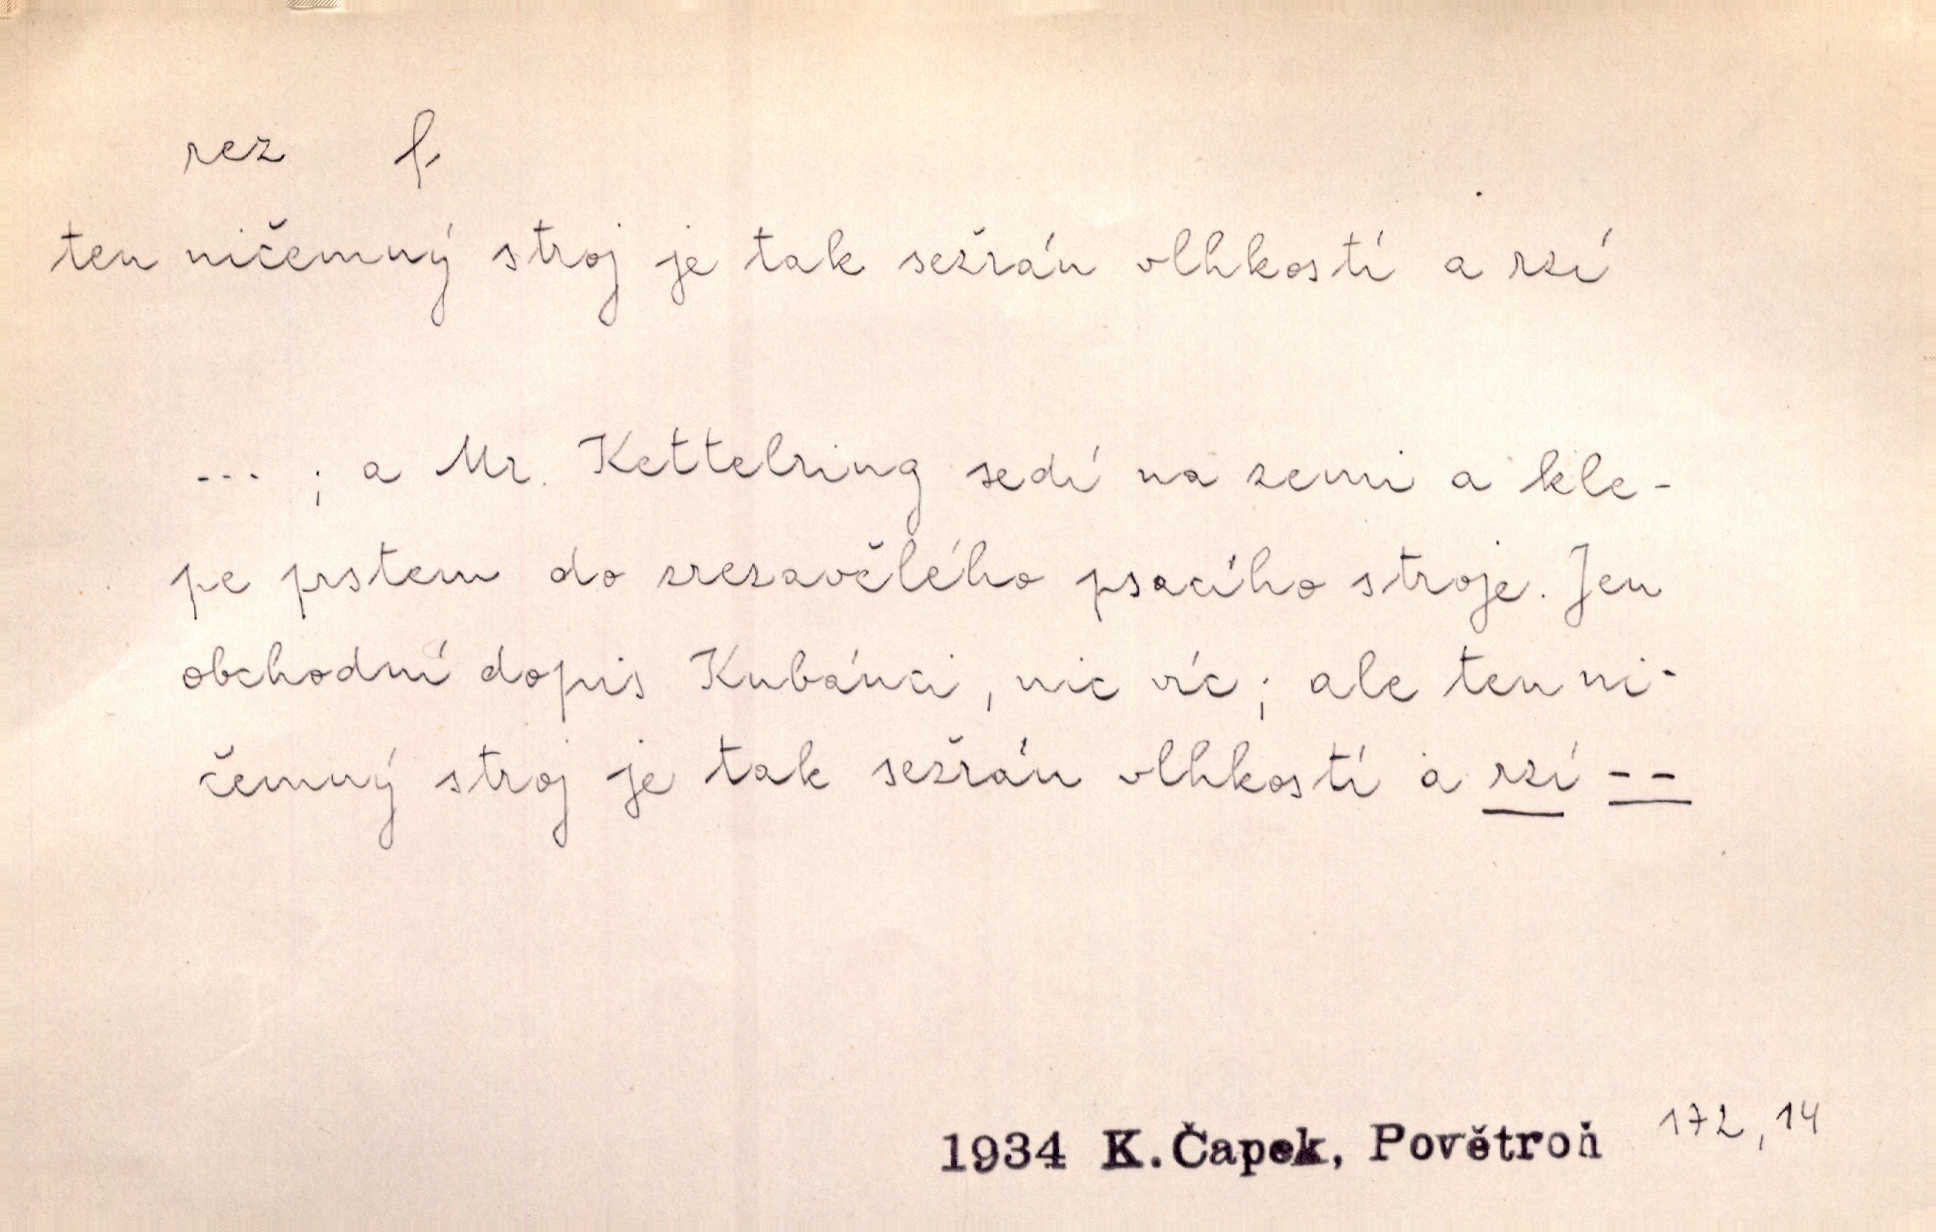 rez f.
ten ničemný stroj je tak sežrán vlhkostí a rzí
--- ; a Mr. Kettelring sedí na zemi a kle-
pe prstem do zrezavělého psacího stroje. Jen
obchodní dopis Kubánci, nic víc; ale ten ni-
čemný stroj je tak sežrán vlhkostí a rzí --
1934 K. Čapek, Povětroň 172, 14